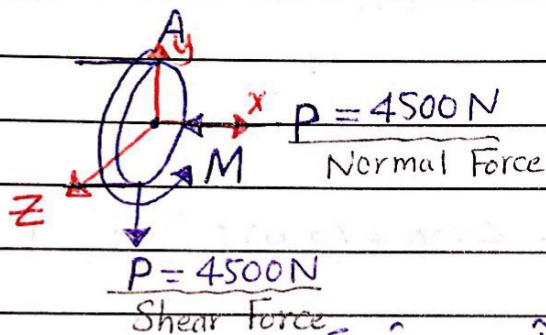 A
y
x
P = 4500 N
Normal Force
M
Z
P = 4500 N
Shear Force